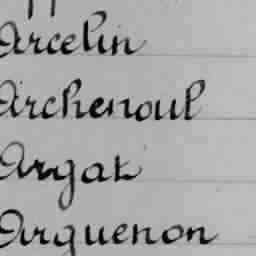 Arcelin
Archenoul
Argat
Arguenon